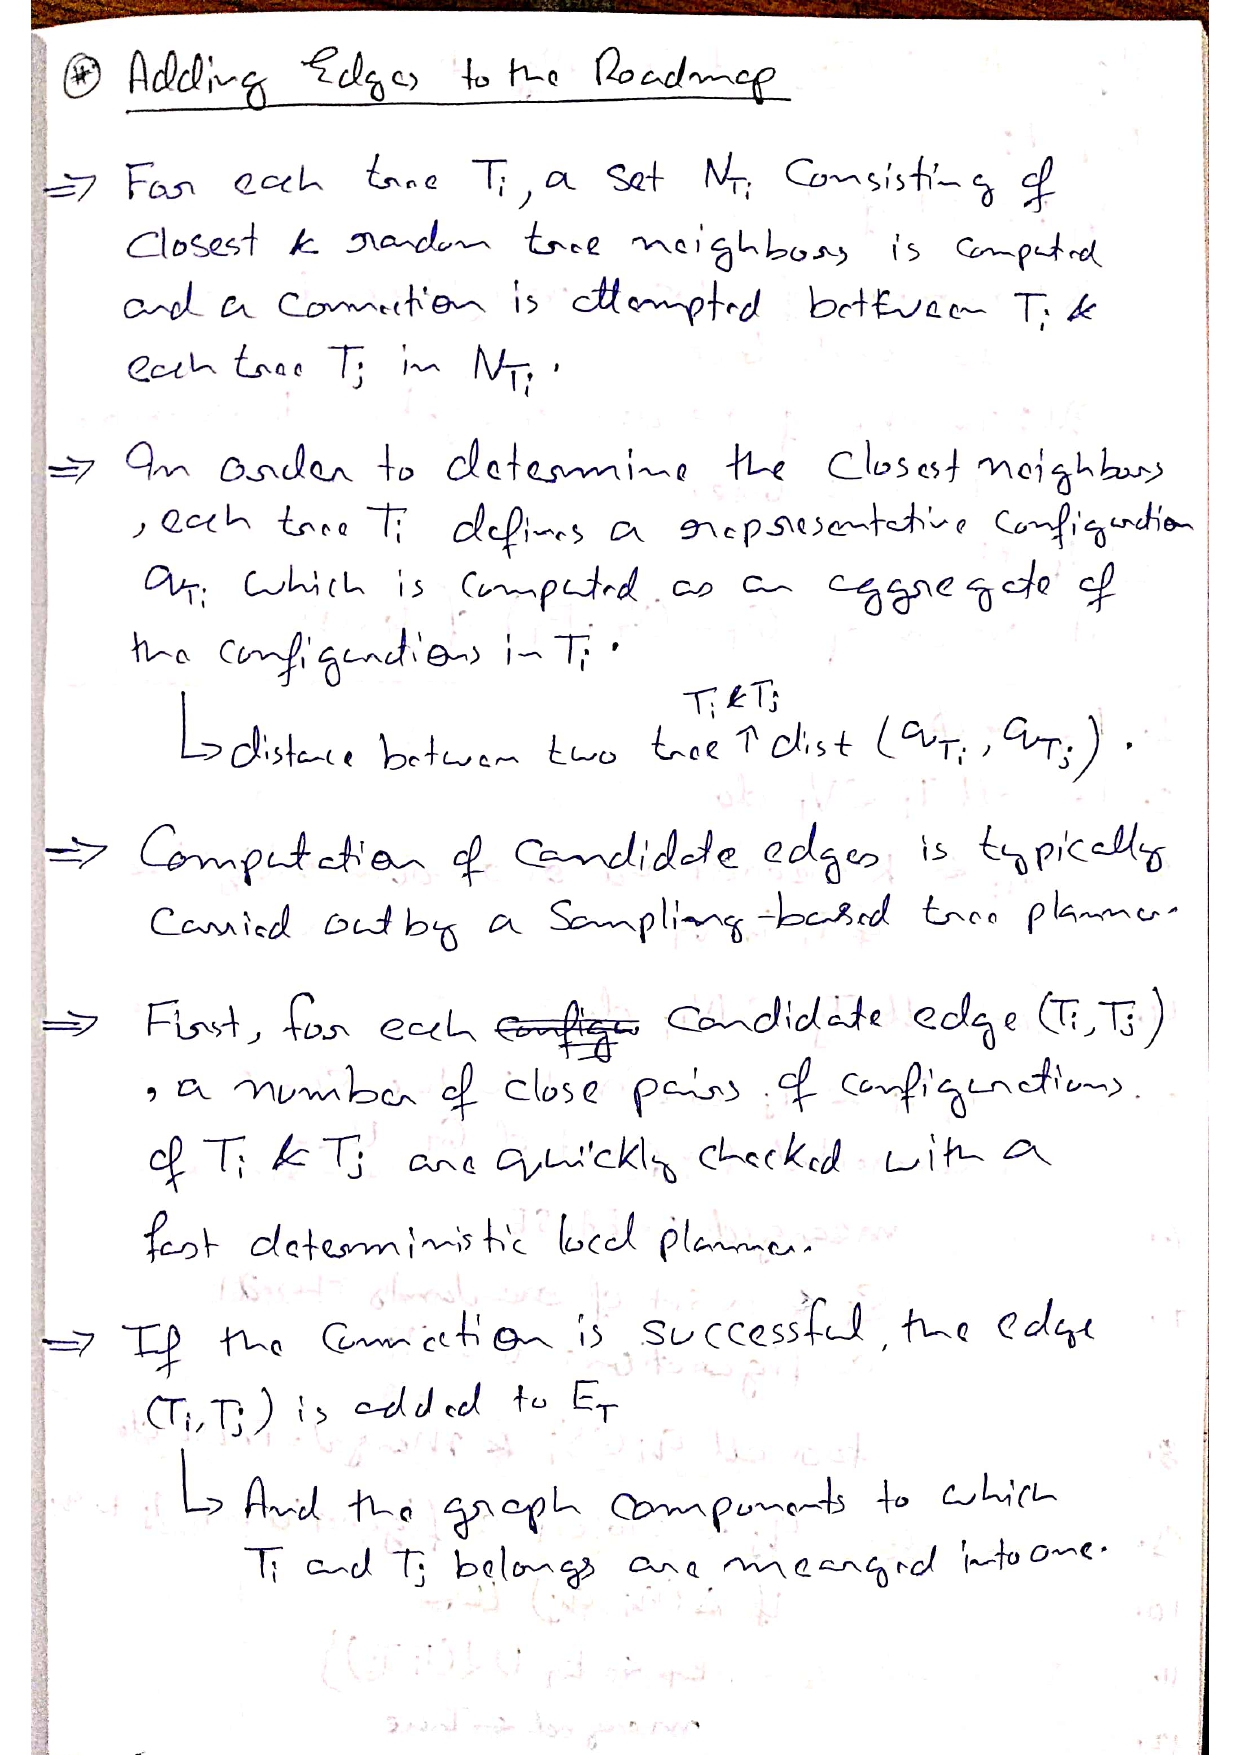 # Adding Edges to the Roadmap
⇒ For each tree Ti, a set NTi Consisting of
Closest k random tree neighbors is computed
and a connection is attempted between Ti &
each tree Tj in NTi.
⇒ In order to determine the closest neighbors
, each tree Ti defines a representative configuration
qTi which is computed as an aggregate of
the configurations in Ti.
Ti & Tj
↳ distance between two tree ↑ dist (qTi, qTj).
⇒ Computation of candidate edges is typically
Carried out by a Sampling-based tree planner.
⇒ First, for each ~~configu~~ candidate edge (Ti, Tj)
, a number of close pairs of configurations.
of Ti & Tj are quickly checked with a
fast deterministic local planner.
⇒ If the connection is successful, the edge
(Ti, Tj) is added to ET
↳ And the graph components to which
Ti and Tj belongs are meanged into one.